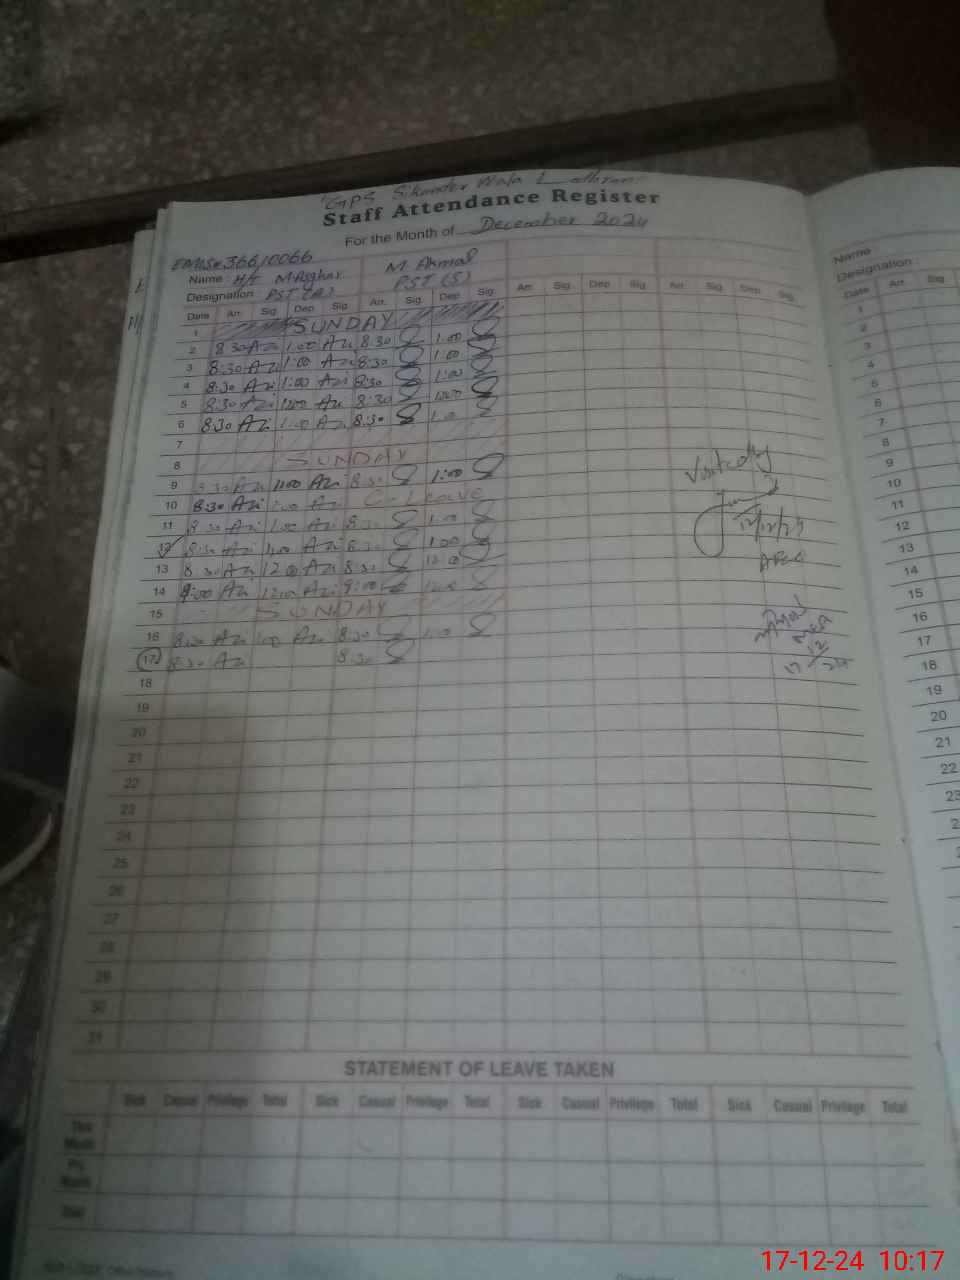 GPS Sikander Wala Lodhran
Staff Attendance Register
For the Month of December 2024
EMIS# 36610066
Name : H/T M. Asghar M. Akmal
Designation PST (A) PST (S)
Date Arr. Sig. Dep. Sig. Arr. Sig. Dep. Sig. Arr. Sig. Dep. Sig. Arr. Sig. Dep. Sig.
1 SUNDAY
2 8:30 1:00 8:30 1:00
3 8:30 1:00 8:30 1:00
4 8:30 1:00 8:30 1:00
5 8:30 1:00 8:30 1:00
6 8:30 1:00 8:30 1:00
7
8 SUNDAY
9 8:30 1:00 8:30 1:00
10 8:30 1:00 C-Leave
11 8:30 1:00 8:30 1:00
12 8:30 1:00 8:30 1:00
13 8:30 12:00 8:30 12:00
14 9:00 12:00 9:00 12:00
15 SUNDAY
16 8:30 1:00 8:30 1:00
17 8:30 8:30
18
19
20
21
22
23
24
25
26
27
28
29
30
31
12/12/24
AEO
MEA
17/12/24
STATEMENT OF LEAVE TAKEN
Sick Casual Privilege Total Sick Casual Privilege Total Sick Casual Privilege Total Sick Casual Privilege Total
This Month
Pre. Month
Total
Name
Designation :
Date Arr. Sig.
1
2
3
4
5
6
7
8
9
10
11
12
13
14
15
16
17
18
19
20
21
22
23
17-12-24 10:17